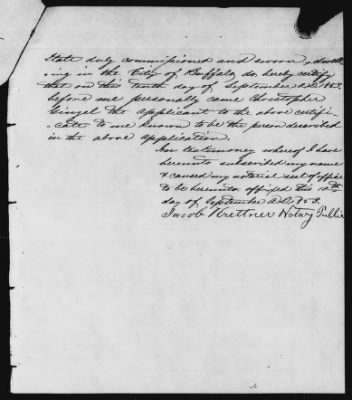 State duly commissioned and sworn, dwell
ing in the City of Buffalo, do, hereby certify
that on this tenth day of September A.D. 1853.
before me personally came Christopher
the applicant to the above certifi-
-cate to me known to be the person described
in the above application.
In testimony whereof I have
hereunto subscribed my name
& caused my notarial seal of office
to be hereunto affixed this 10th
day of September A.D. 1853.
Jacob Krettner Notary Public